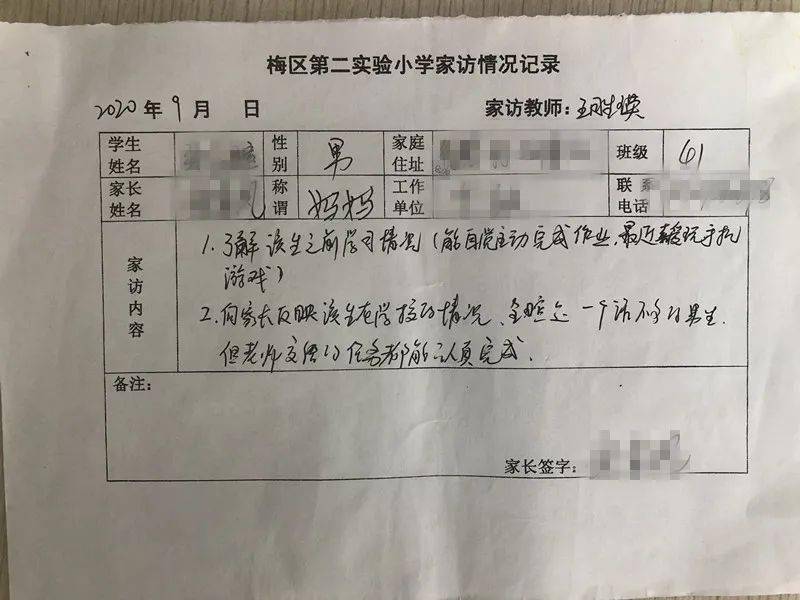 梅区第二实验小学家访情况记录
2020 年 9 月 日 家访教师：王胜瑛
学生姓名 性别 男 家庭住址 班级 41
家长姓名 称谓 妈妈 工作单位 联系电话
家访内容
1. 了解该生之前学习情况（能自觉主动完成作业，最近喜爱玩手机
游戏）
2. 向家长反映该生在学校的情况、是一个话不多的男生，
但老师交给的任务都能认真完成．
备注：
家长签字：